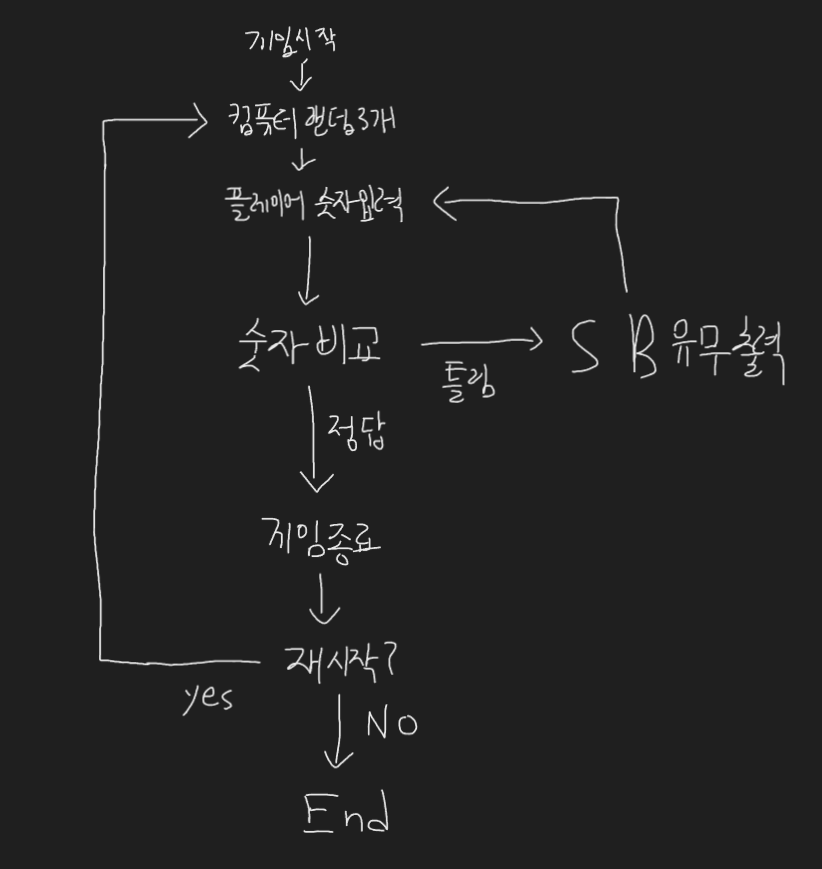 게임시작
컴퓨터 랜덤3개
플레이어 숫자입력
숫자비교
틀림
S B유무출력
정답
게임종료
재시작?
yes
No
End